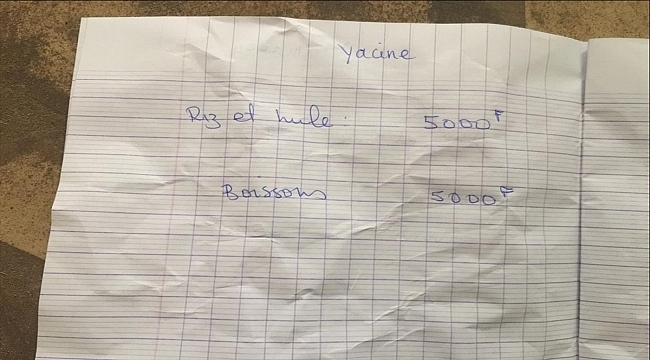 Yacine
Riz et huile : 5000 F
Boissons 5000 F